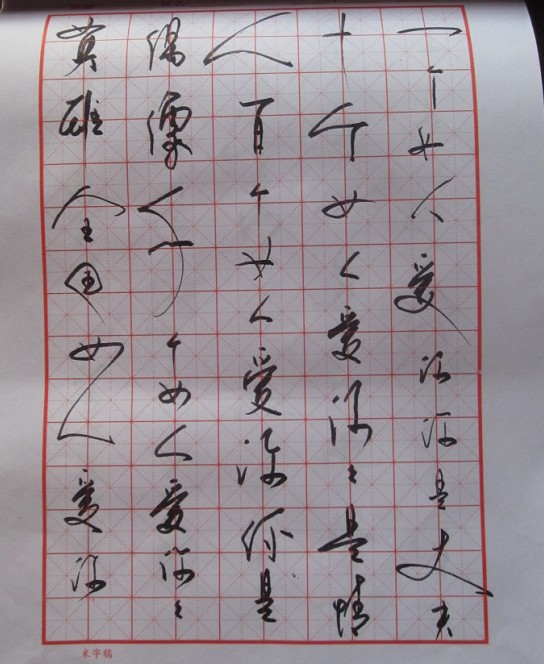 一个女人爱你你是丈夫
十个女人爱你々是情
人百个女人爱你你是
偶像个女人爱你々
英雄全国女人爱你
米字稿